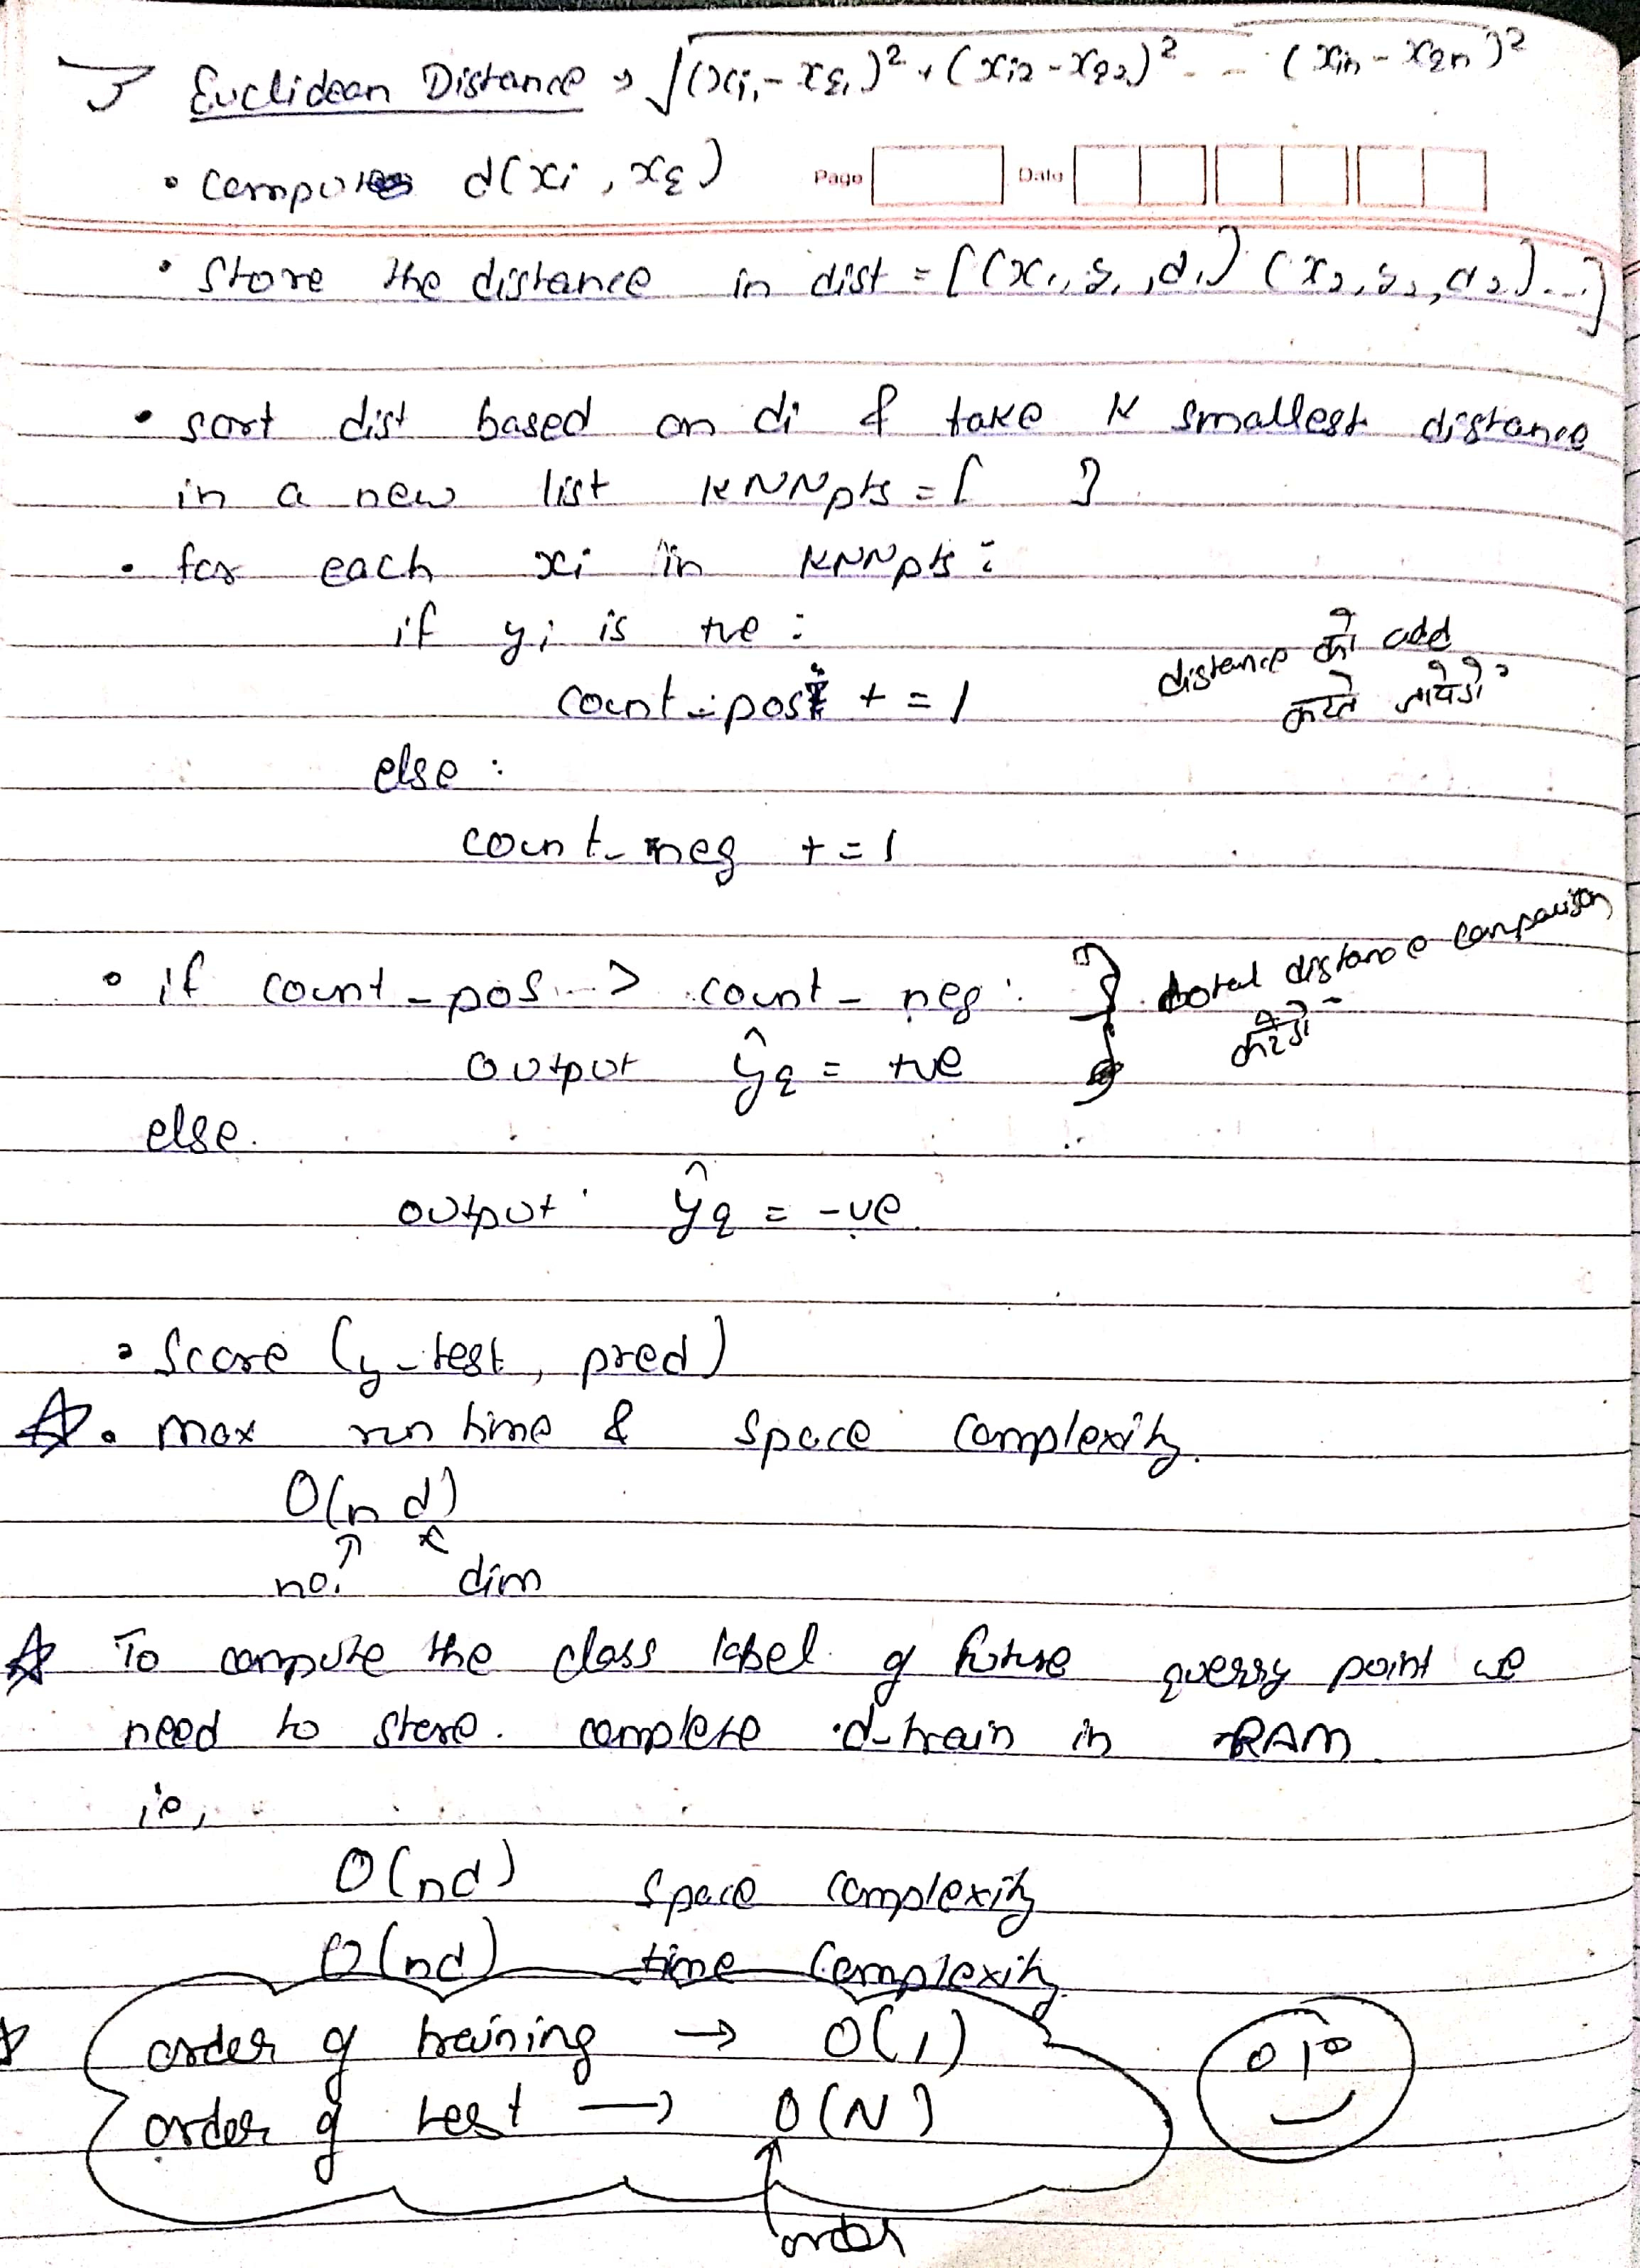 Euclidean Distance → √(xi₁ - xq₁)² + (xi₂ - xq₂)² - - (xin - xqn)²
• Computes d(xi, xq)
Page Date
• Store the distance in dist = [(x₁, y₁, d₁) (x₂, y₂, d₂)...]
• sort dist based on di & take K smallest distance
in a new list KNNpts = [ ]
• for each xi in KNNpts :
if yi is +ve :
count_pos += 1
distance को add
करते जायेंगे
else :
count_neg += 1
• if count_pos > count_neg :
total distance comparison
करेंगे
output ŷq = +ve
else
output ŷq = -ve
• Score (y_test, pred)
• max run time & space complexity
O(n d)
no. dim
To compute the class label of future querry point we
need to store complete d_train in RAM
ie,
O(nd) space complexity
O(nd) time complexity
order of training → O(1)
order of test → O(N)
order